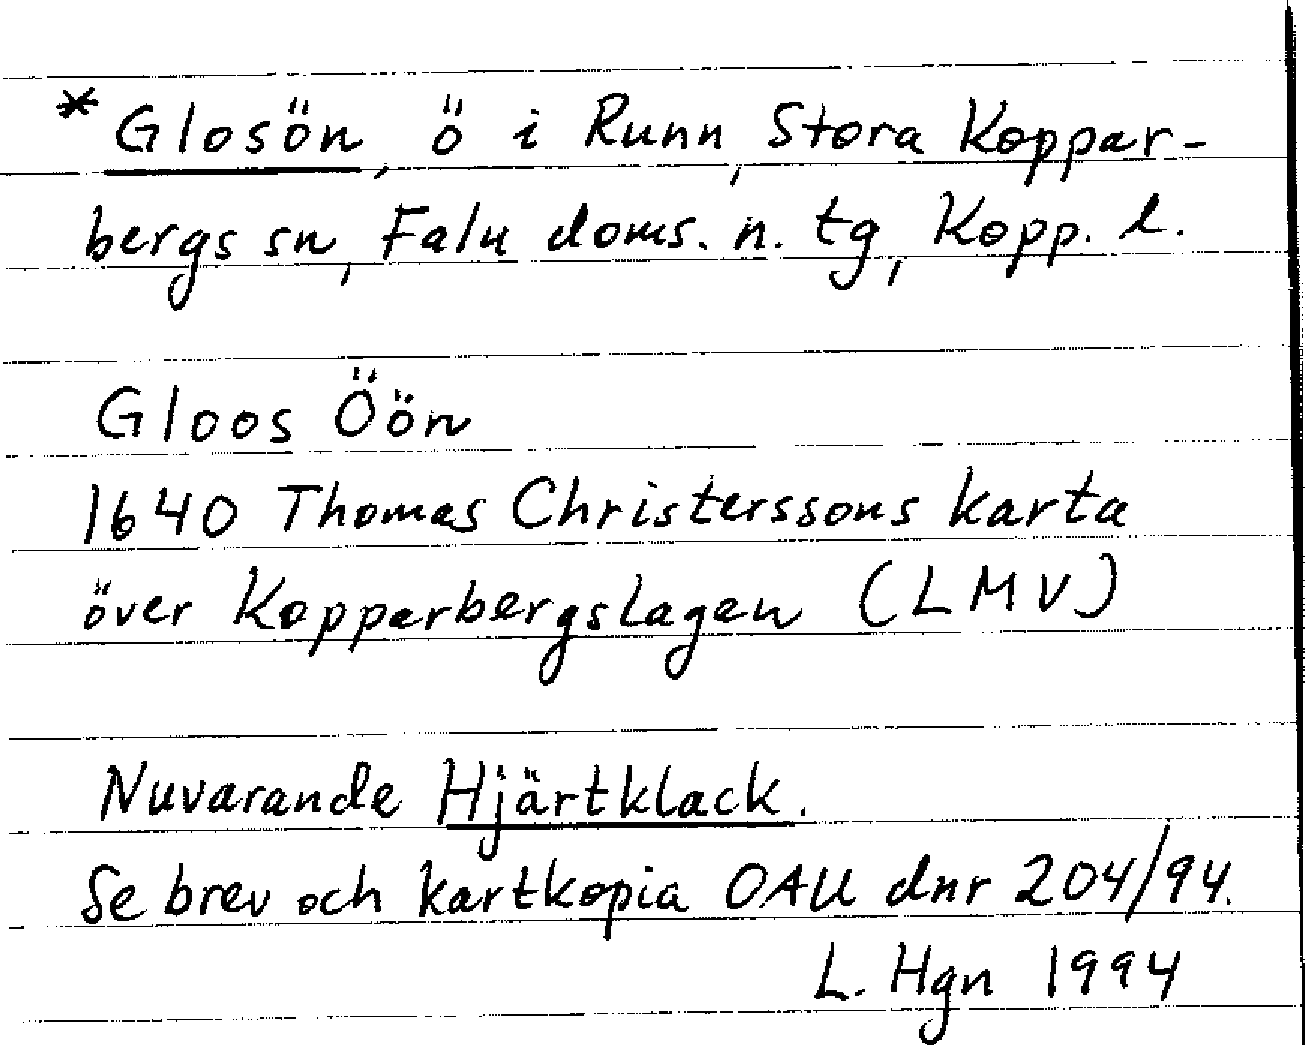 * Glosön, ö i Runn, Stora Koppar-
bergs sn, Falu doms. n. tg, Kopp. l.
Gloos Öön
1640 Thomas Christerssons karta
över Kopparbergslagen (LMV)
Nuvarande Hjärtklack.
Se brev och kartkopia OAU dnr 204/94.
L. Hgn 1994